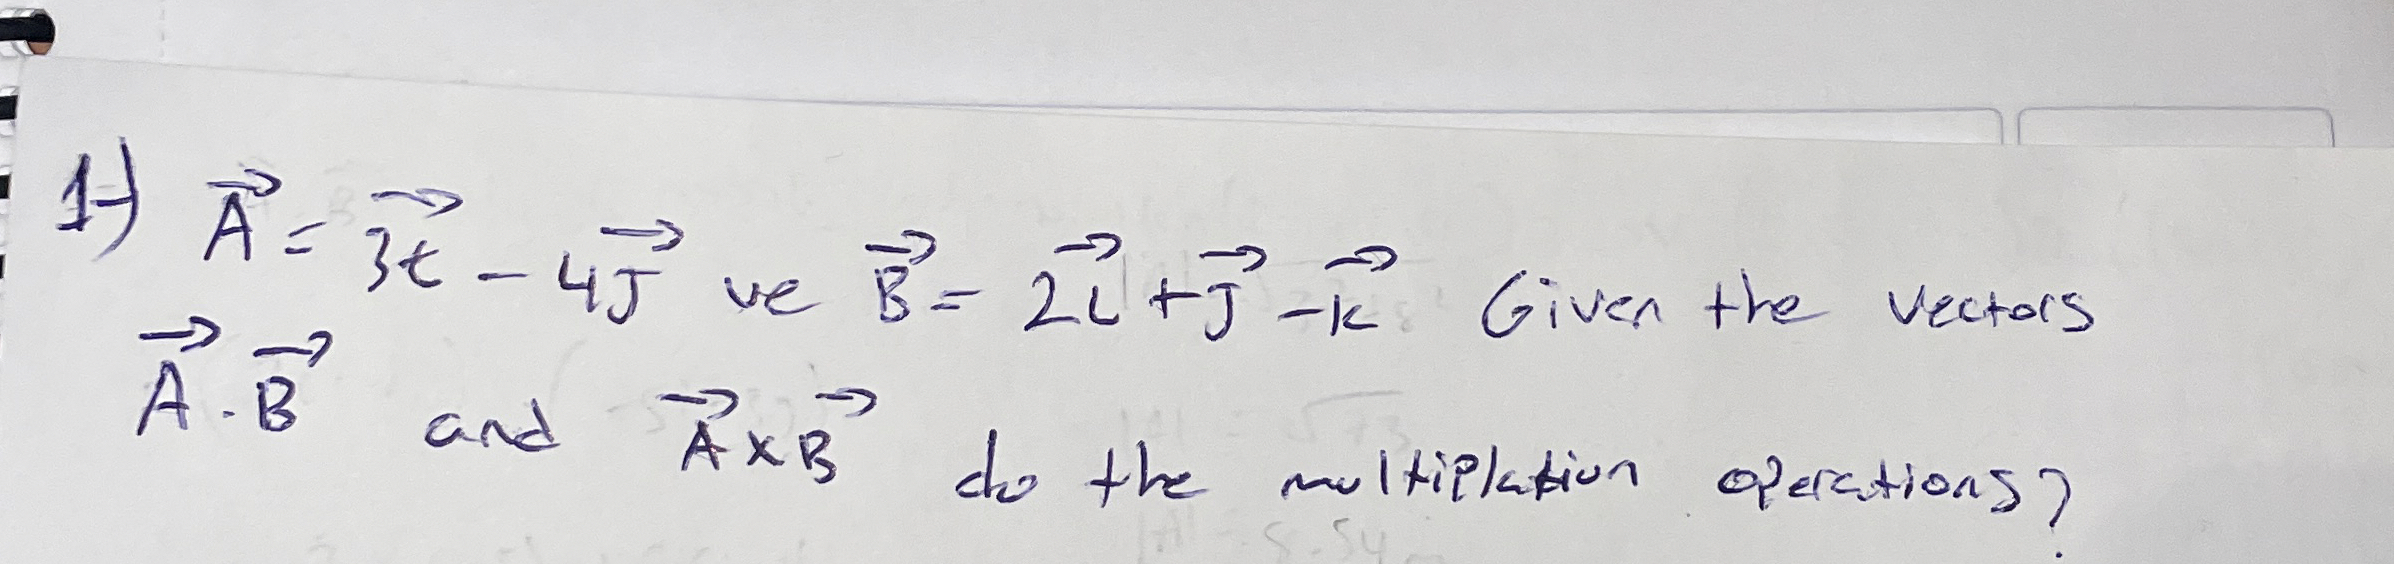 1-) A = 3t - 4J ve B = 2i + J - k Given the vectors
A . B and A x B do the multiplation operations?